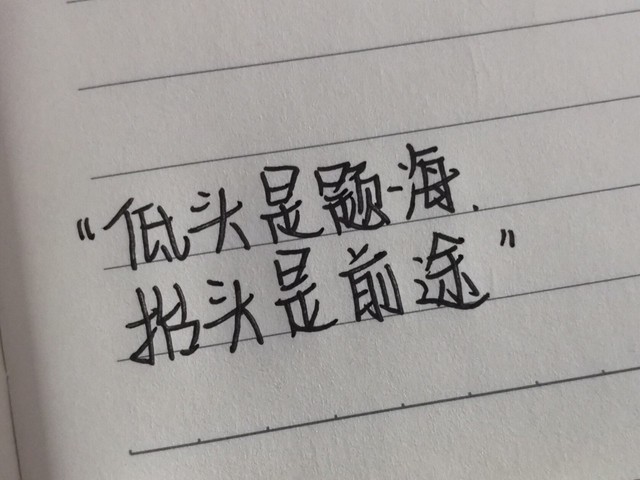 “低头是题海.
抬头是前途”